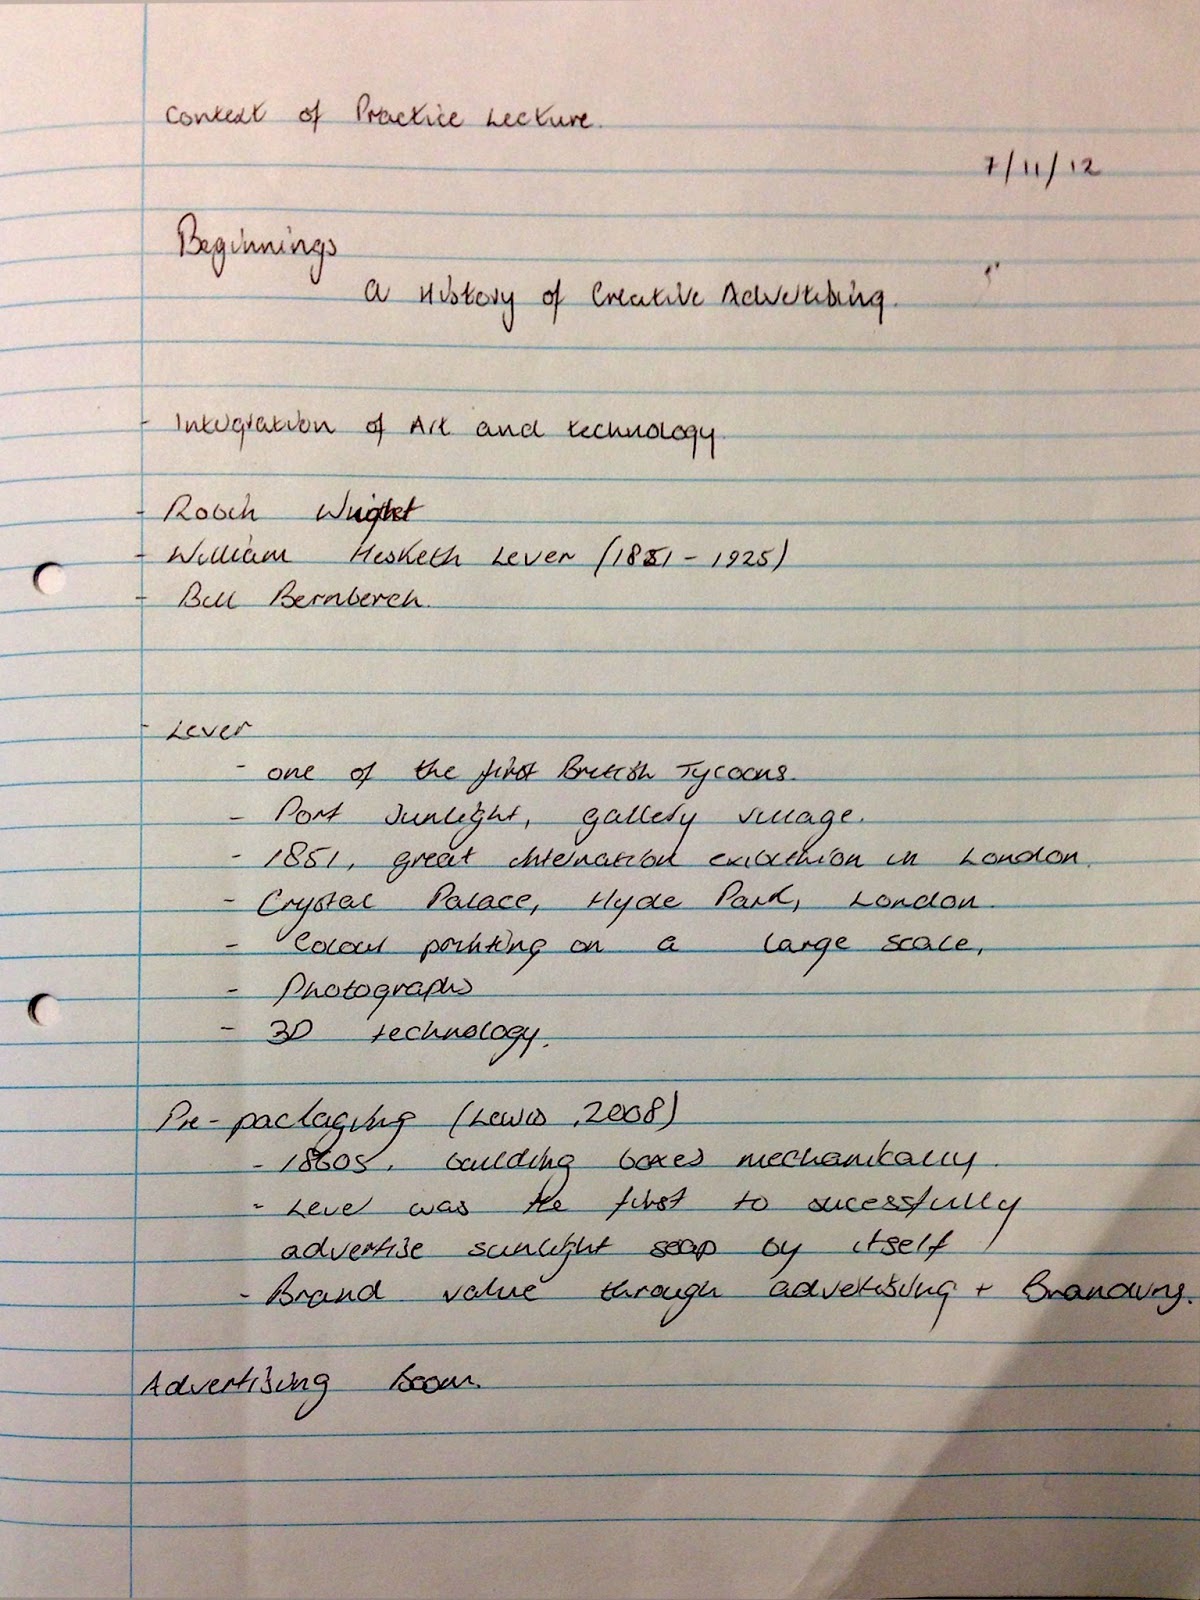 Context of Practice Lecture.
7/11/12
Beginnings
a History of Creative Advertising.
- Integration of Art and technology.
- Robin Wright
- William Hesketh Lever (1851 - 1925)
- Bill Bernberch.
- Lever
- one of the first British Tycoons.
- Port Sunlight, gallery village.
- 1851, great internation exibithion in London.
- Crystal Palace, Hyde Park, London.
- Colour printing on a large scale,
- Photographs
- 3D technology.
Pre-packaging (Lewis, 2008)
- 1860s, building boxes mechanically.
- Lever was the first to sucessfully
advertise sunlight soap by itself
- Brand value through advertising + Branding.
Advertising boom.